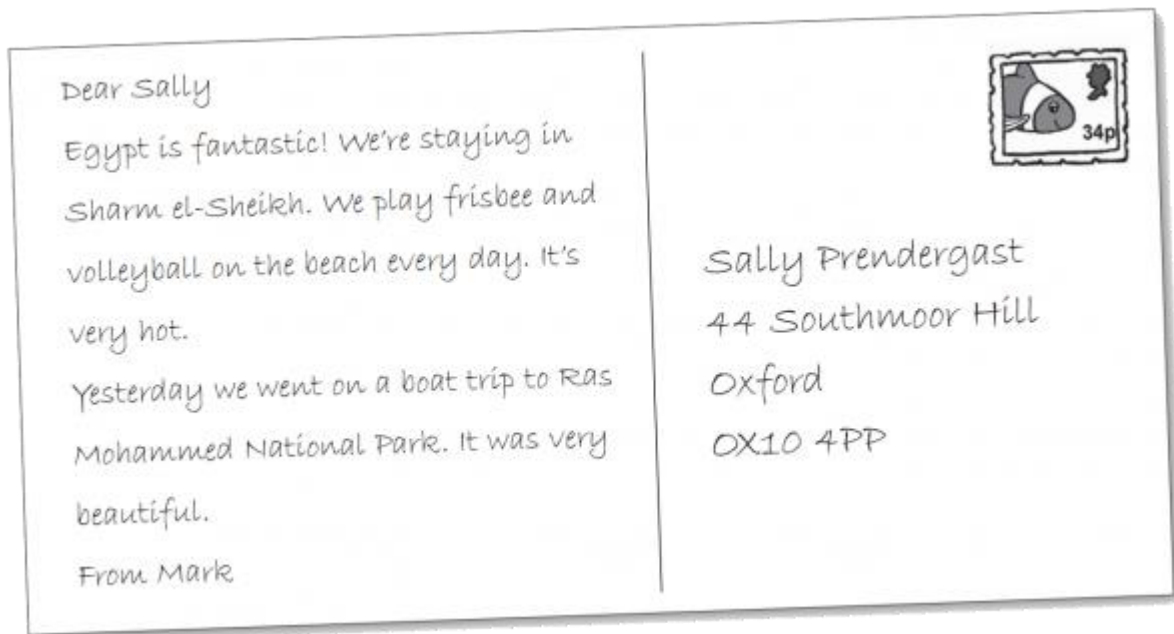 Dear Sally
Egypt is fantastic! We're staying in
Sharm el-Sheikh. We play frisbee and
volleyball on the beach every day. It's
very hot.
Yesterday we went on a boat trip to Ras
Mohammed National Park. It was very
beautiful.
From Mark
34p
Sally Prendergast
44 Southmoor Hill
Oxford
OX10 4PP